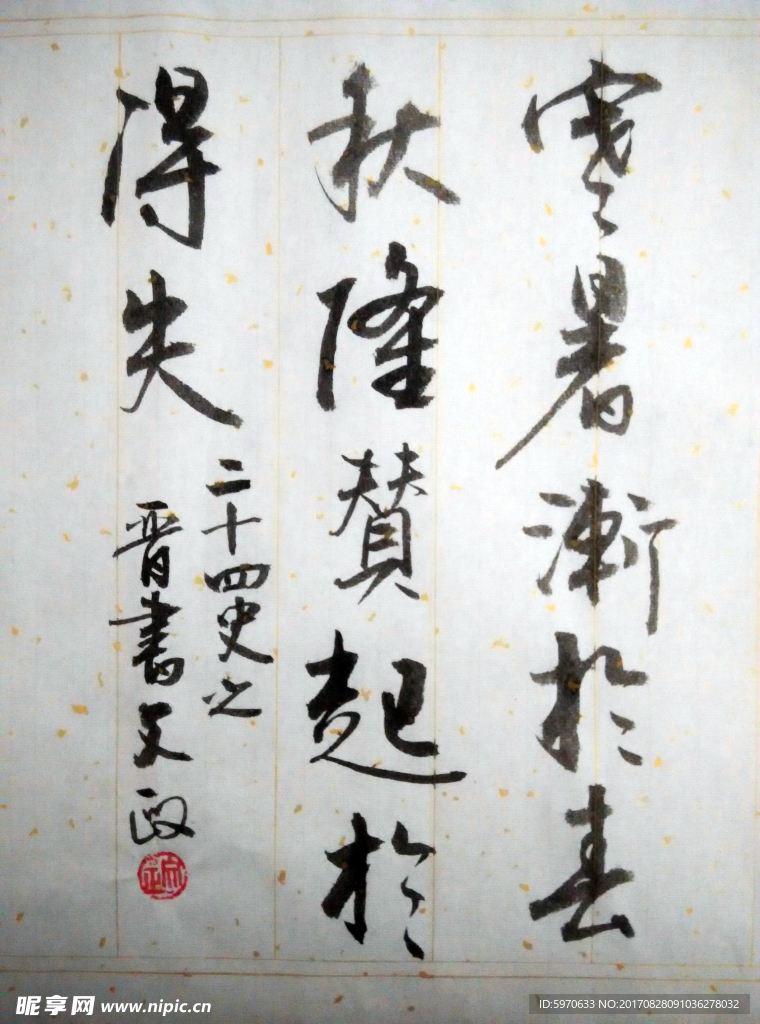 寒暑漸於春
秋隆賛起於
得失
二十四史之
晋書文政
昵享网 www.nipic.cn
ID:5970633 NO:20170828091036278032